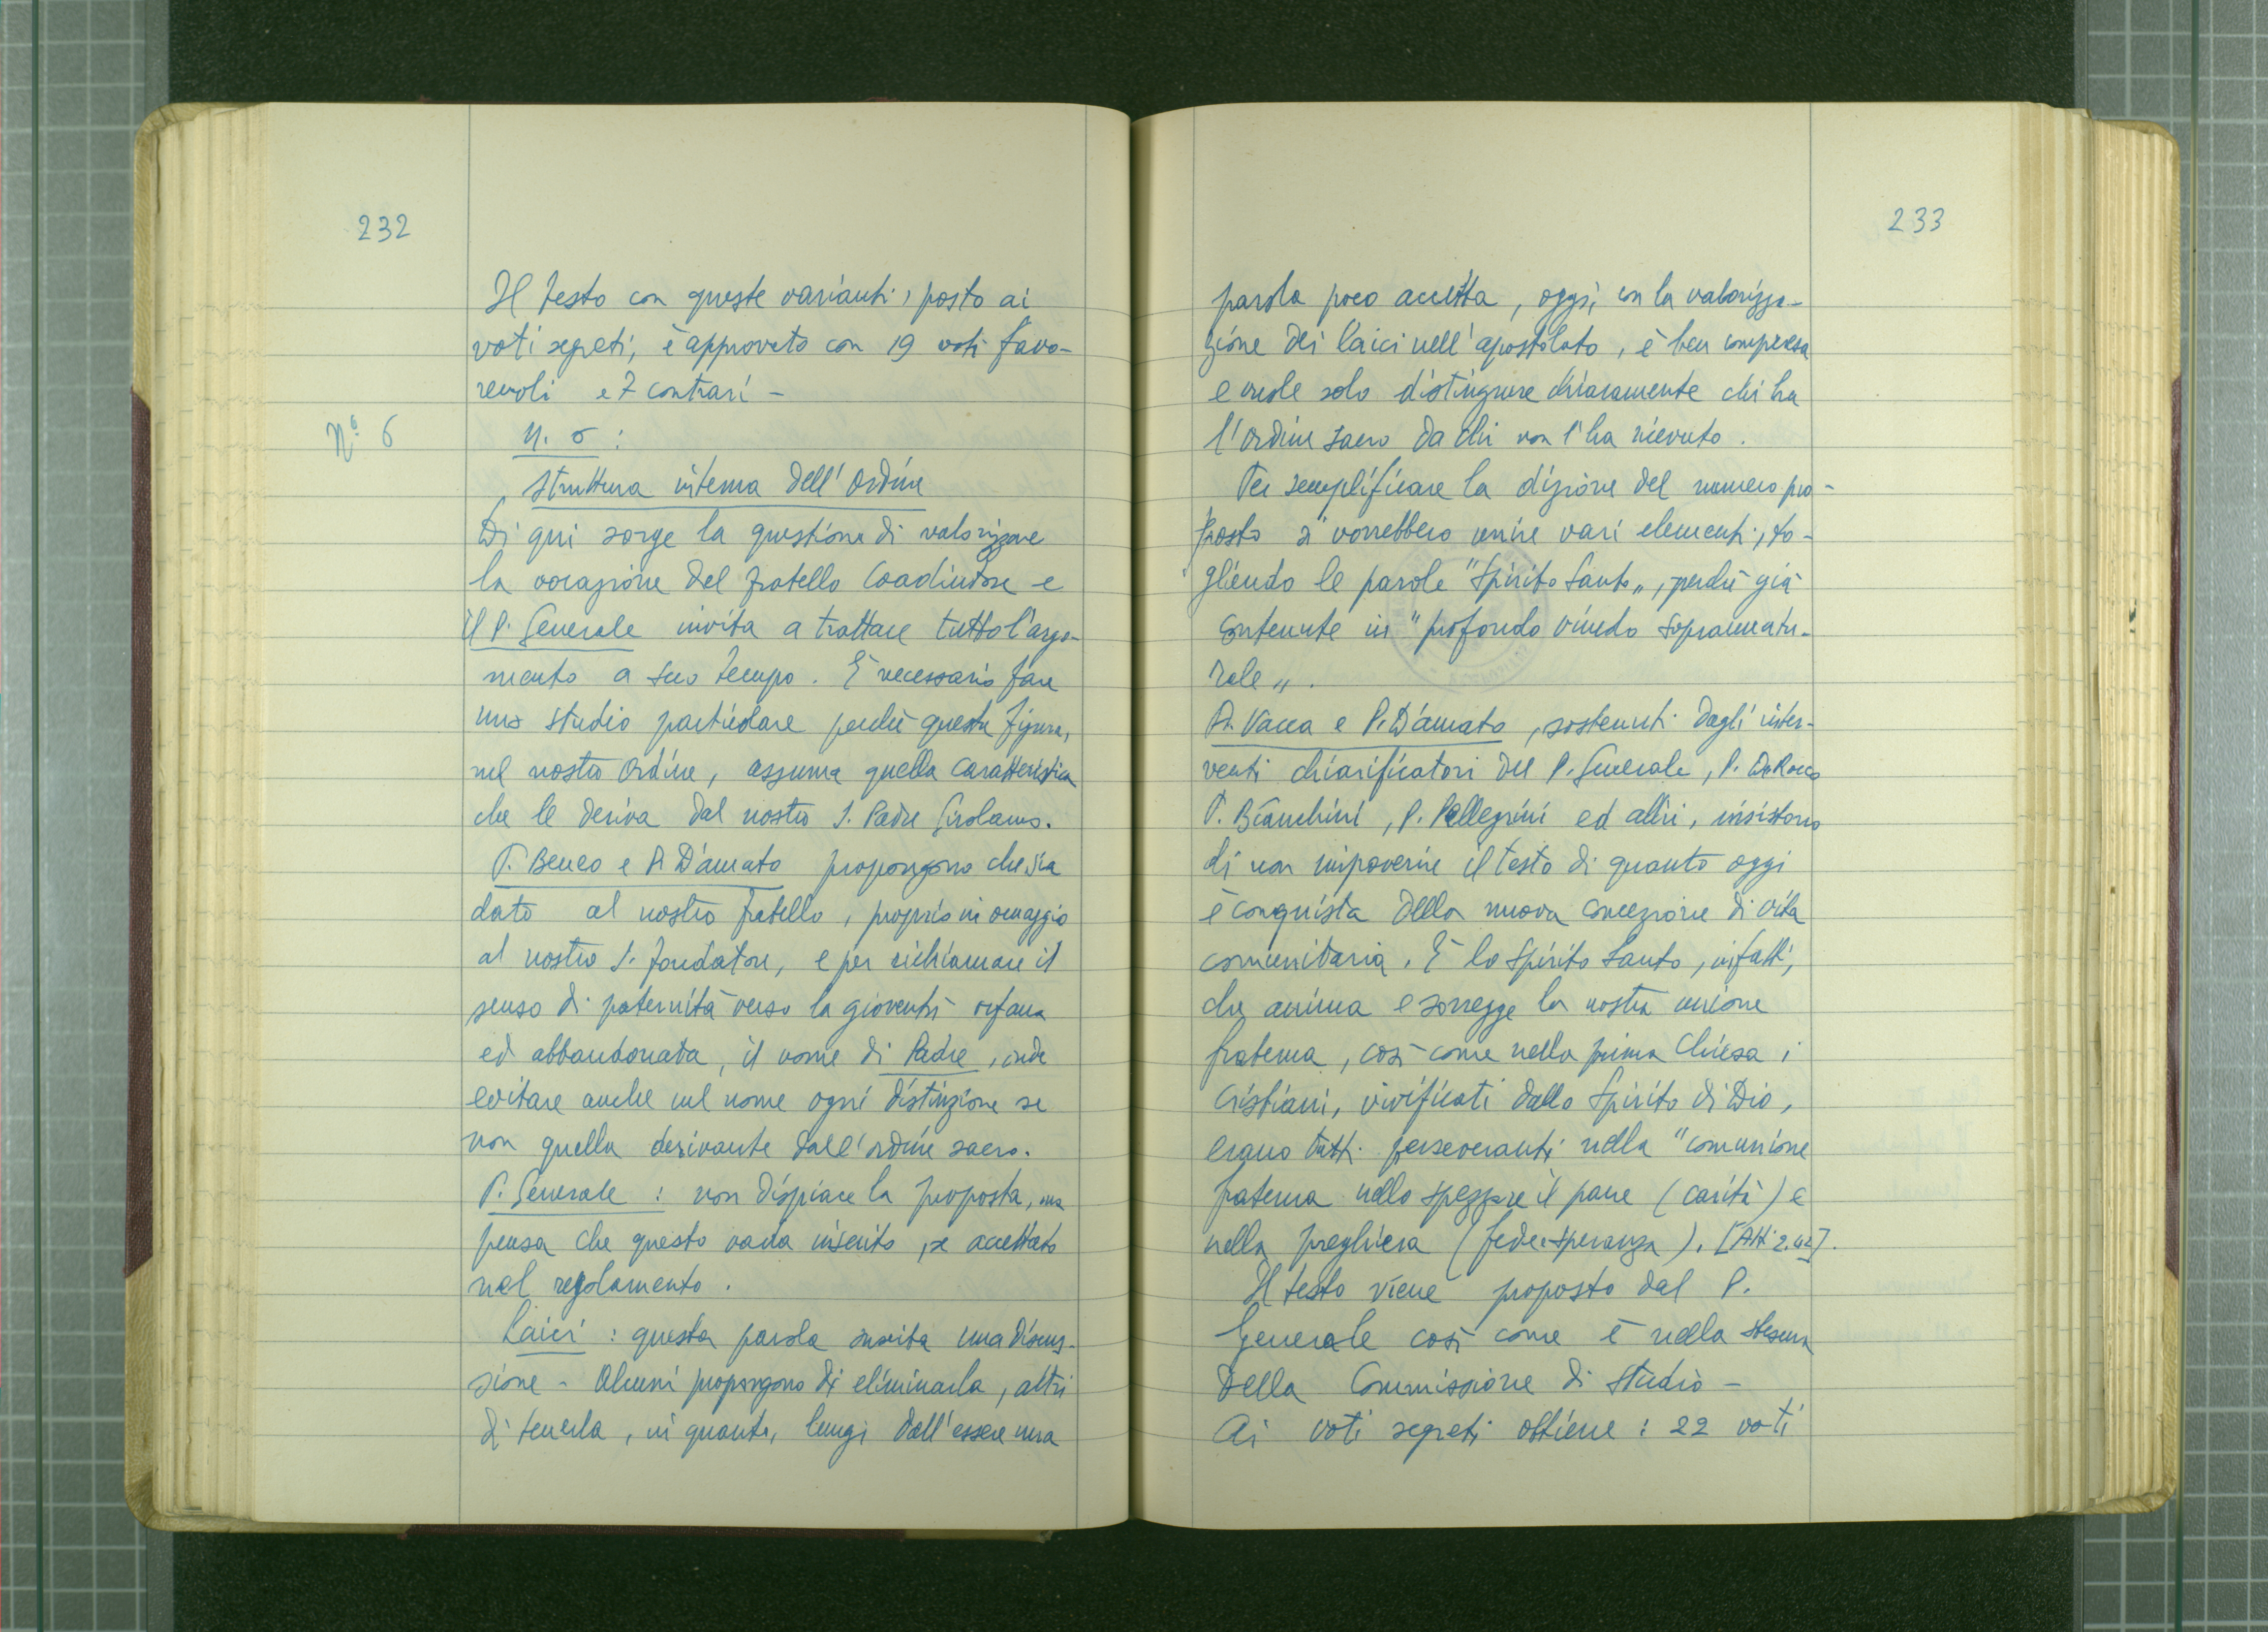 232
Il testo con queste varianti, posto ai
voti segreti, è approvato con 19 voti favo-
revoli e 7 contrari -
Nº 6
n. 6 :
Struttura interna dell'Ordine
Di qui sorge la questione di valorizzare
la vocazione del fratello Coadiutore e
il P. Generale invita a trattare tutto l'argo-
mento a suo tempo. È necessario fare
uno studio particolare perché questa figura,
nel nostro Ordine, assuma quella caratteristica
che le deriva dal nostro S. Padre Girolamo.
P. Beneo e P. D'amato propongono che sia
dato al nostro fratello, proprio in omaggio
al nostro S. fondatore, e per richiamare il
senso di paternità verso la gioventù orfana
ed abbandonata, il nome di Padre, onde
evitare anche nel nome ogni distinzione se
non quella derivante dall'ordine sacro.
P. Generale : non dispiace la proposta, ma
pensa che questo vada inserito, se accettato
nel regolamento.
Laici : questa parola suscita una discus-
sione - Alcuni propongono di eliminarla, altri
di tenerla, in quanto, lungi dall'essere una
233
parola poco accetta, oggi, con la valorizza-
zione dei laici nell'apostolato, è ben compresa
e vuole solo distinguere chiaramente chi ha
l'Ordine sacro da chi non l'ha ricevuto.
Per semplificare la dizione del numero pro-
posto si vorrebbero unire vari elementi, to-
gliendo le parole "Spirito Santo", perché già
contenute in "profondo vincolo soprannatu-
rale".
P. Vacca e P. D'amato, sostenuti dagli inter-
venti chiarificatori del P. Generale, P. De Rocco
P. Bianchini, P. Pellegrini ed altri, insistono
di non impoverire il testo di quanto oggi
è conquista della nuova concezione di vita
comunitaria. È lo Spirito Santo, infatti,
che anima e sorregge la nostra unione
fraterna, così come nella prima Chiesa i
Cristiani, vivificati dallo Spirito di Dio,
erano tutti perseveranti nella "comunione
fraterna nello spezzare il pane (carità) e
nella preghiera (fede e speranza). [Atti 2.42].
Il testo viene proposto dal P.
Generale così come è nella stesura
della Commissione di studio -
Ai voti segreti ottiene : 22 voti